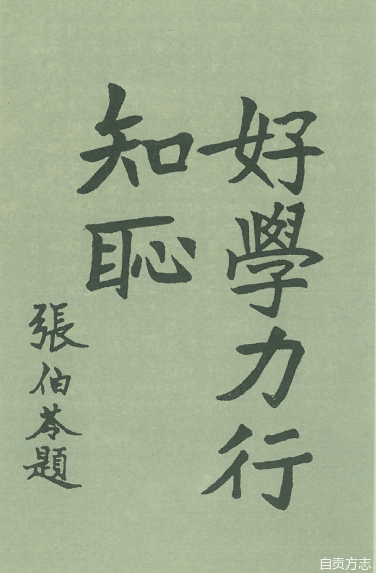 好學力行
知恥
張伯苓題
自贡方志